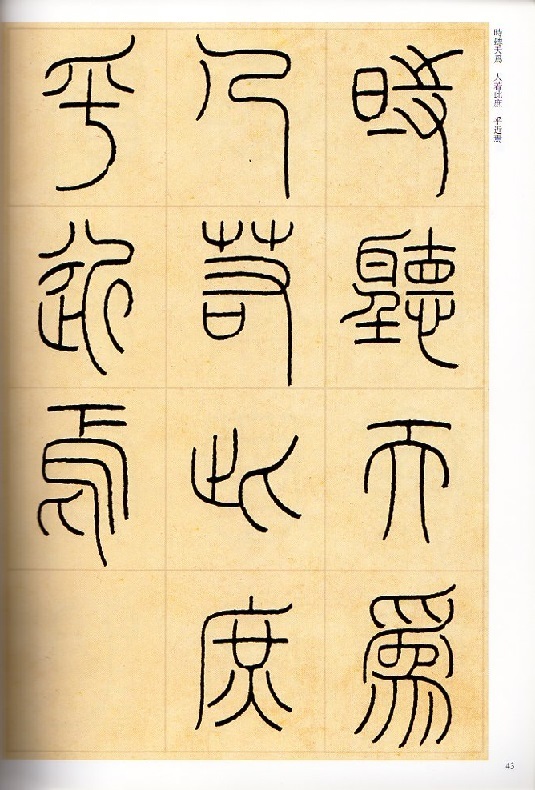 時聽天爲 人若此庶 乎近焉
時聽天爲
人若此庶
乎近焉
43